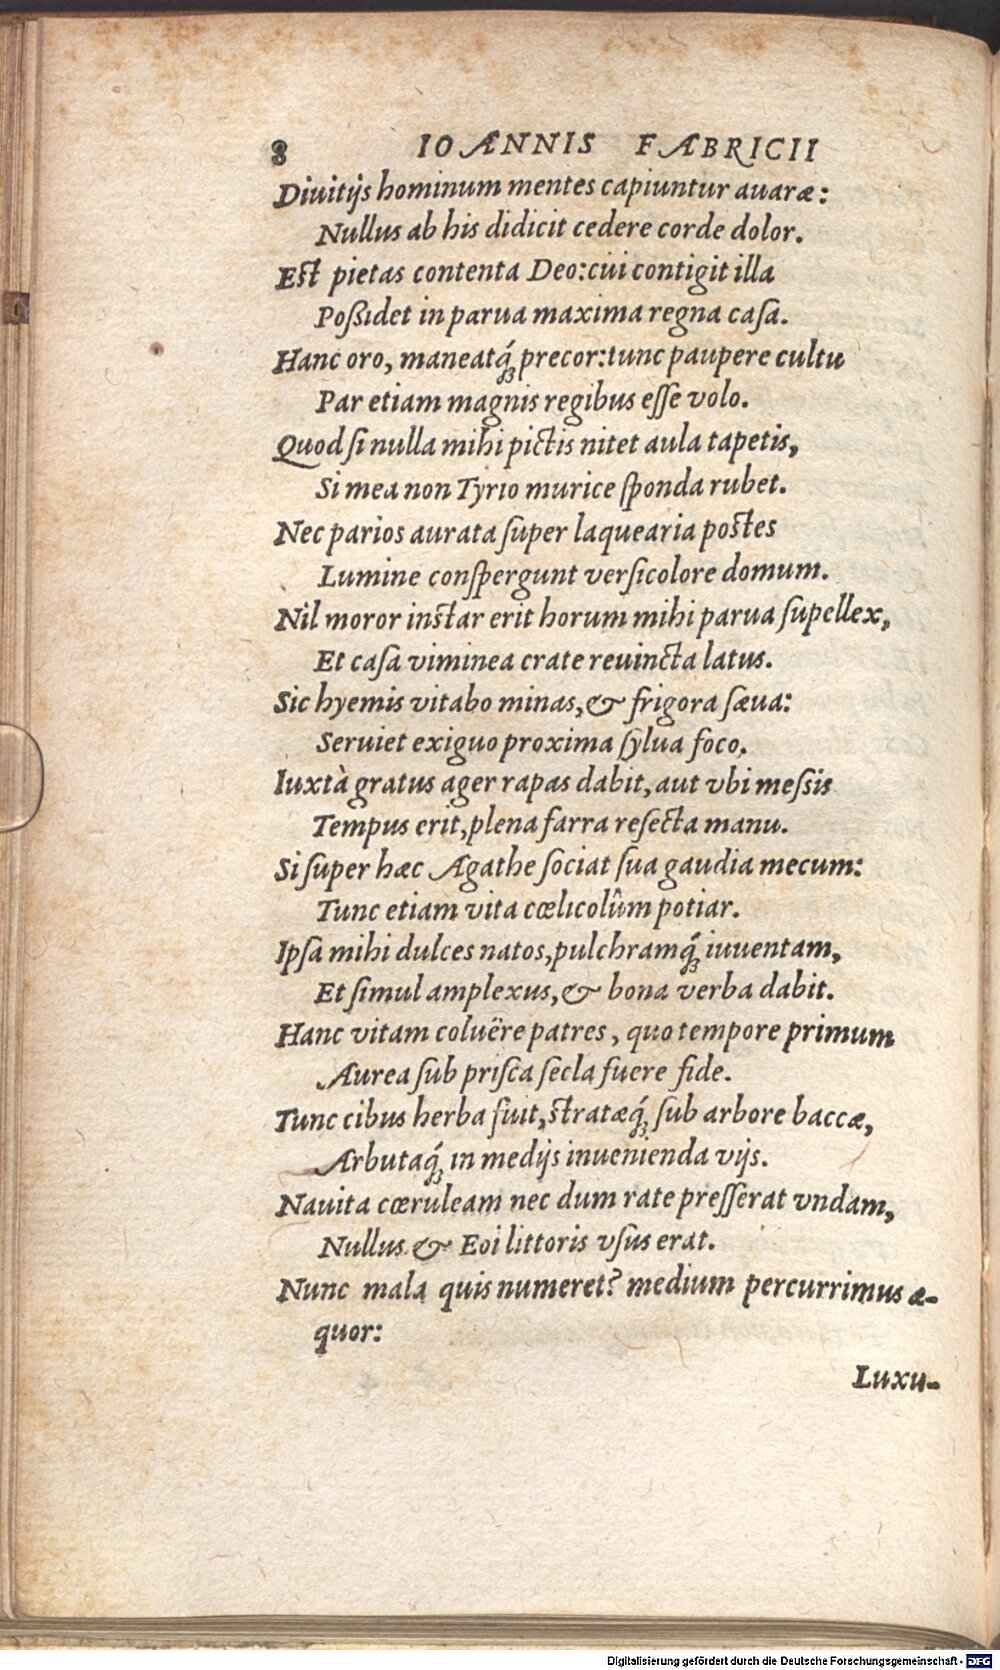 8 IOANNIS FABRICII
Diuitijs hominum mentes capiuntur auaræ:
Nullus ab his didicit cedere corde dolor.
Est pietas contenta Deo: cui contigit illa
Poßidet in parua maxima regna casa.
Hanc oro, maneatq́ꝫ precor: tunc paupere cultu
Par etiam magnis regibus eſſe volo.
Quod ſi nulla mihi pictis nitet aula tapetis,
Si mea non Tyrio murice ſponda rubet.
Nec parios aurata ſuper laquearia postes
Lumine conſpergunt verſicolore domum.
Nil moror instar erit horum mihi parua ſupellex,
Et caſa viminea crate reuincta latus.
Sic hyemis vitabo minas, & frigora ſæua:
Seruiet exiguo proxima ſylua foco.
Iuxtà gratus ager rapas dabit, aut vbi meſsis
Tempus erit, plena farra reſecta manu.
Si ſuper hæc Agathe ſociat ſua gaudia mecum:
Tunc etiam vita cœlicolûm potiar.
Ipſa mihi dulces natos, pulchramq́ꝫ iuuentam,
Et ſimul amplexus, & bona verba dabit.
Hanc vitam coluëre patres, quo tempore primum
Aurea ſub priſca ſecla fuere fide.
Tunc cibus herba fuit, stratæq́ꝫ ſub arbore baccæ,
Arbutaq́ꝫ in medijs inuenienda vijs.
Nauita cœruleam nec dum rate preſſerat vndam,
Nullus & Eoi littoris vſus erat.
Nunc mala quis numeret? medium percurrimus æ-
quor:
Luxu-
Digitalisierung gefördert durch die Deutsche Forschungsgemeinschaft - DFG